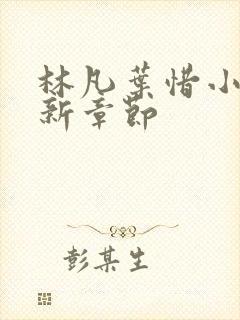 林凡葉惜小
新章節
彭某生